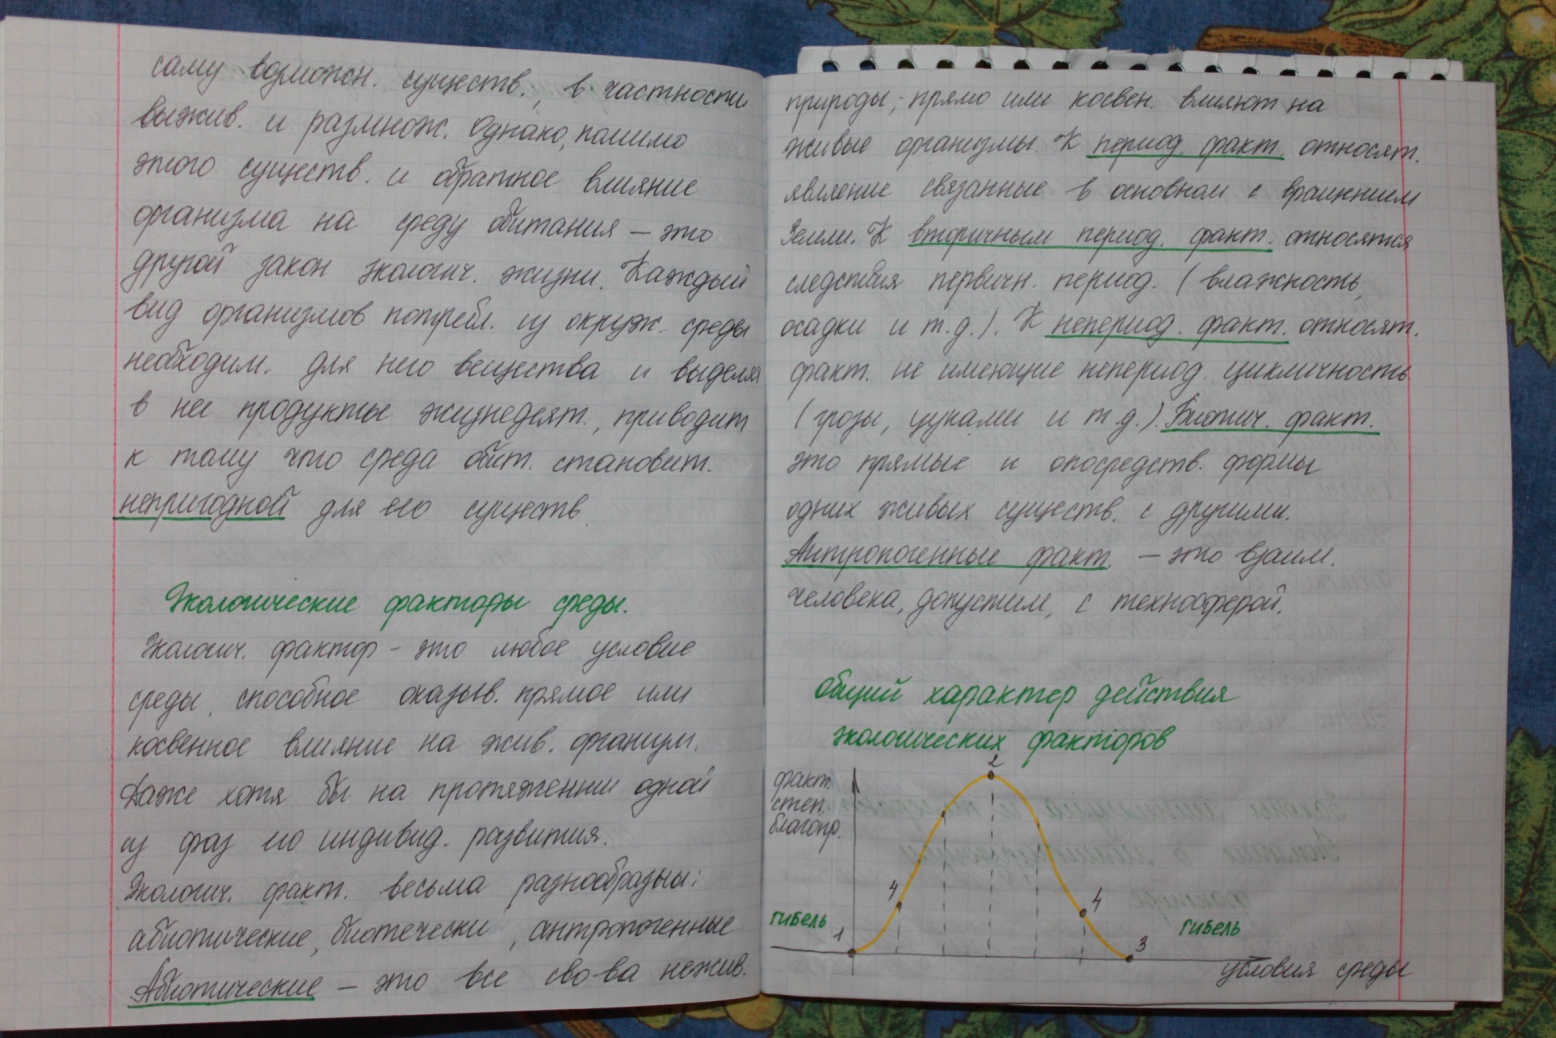 саму возможн. существ., в частности
выжив. и размнож. Однако, помимо
этого существ. и обратное влияние
организма на среду обитания – это
другой закон экологич. жизни. Каждый
вид организмов потребл. из окруж. среды
необходим. для него вещества и выделя
в нее продукты жизнедеят., приводит
к тому что среда обит. становит.
непригодной для его существ.
Экологические факторы среды.
Экологич. фактор - это любое условие
среды, способное оказыв. прямое или
косвенное влияние на жив. организм.
Даже хотя бы на протяжении одной
из фаз его индивид. развития.
Экологич. факт. весьма разнообразны:
абиотические, биотечески, антропогенные
Абиотические – это все сво-ва нежив.
природы; прямо или косвен. влияют на
живые организмы. К период. факт. относят.
явление связанные в основном с вращением
Земли. К вторичным период. факт. относятся
следствия первичн. период. (влажность,
осадки и т.д.). К непериод. факт. относят.
факт. не имеющие непериод. цикличность
(грозы, цунами и т.д.). Биотич. факт.
это прямые и опосредств. формы
одних живых существ. с другими.
Антропогенные факт. – это взаим.
человека, допустим, с техносферой.
Общий характер действия
экологических факторов
факт.
степ.
благопр.
2
4
4
гибель
гибель
1
3
условия среды